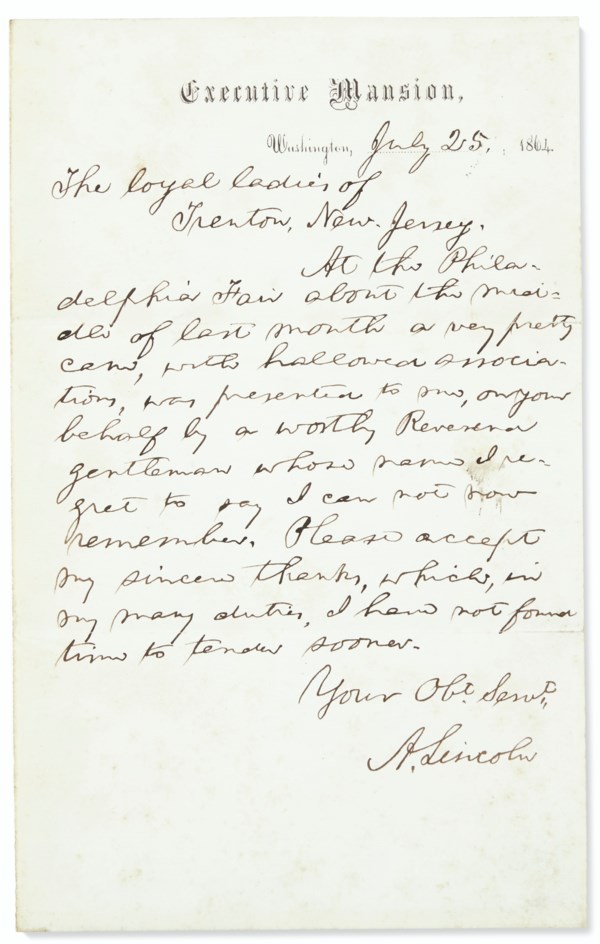 Executive Mansion,
Washington, July 25, 1864.
The loyal ladies of
Trenton, New-Jersey.
At the Phila-
delphia Fair about the mid-
dle of last month a very pretty
cane, with hallowed associa-
tions, was presented to me, on your
behalf by a worthy Reverend
gentleman whose name I re-
gret to say I can not now
remember. Please accept
my sincere thanks, which, in
my many duties, I have not found
time to tender sooner.
Your Obt. Servt.
A. Lincoln